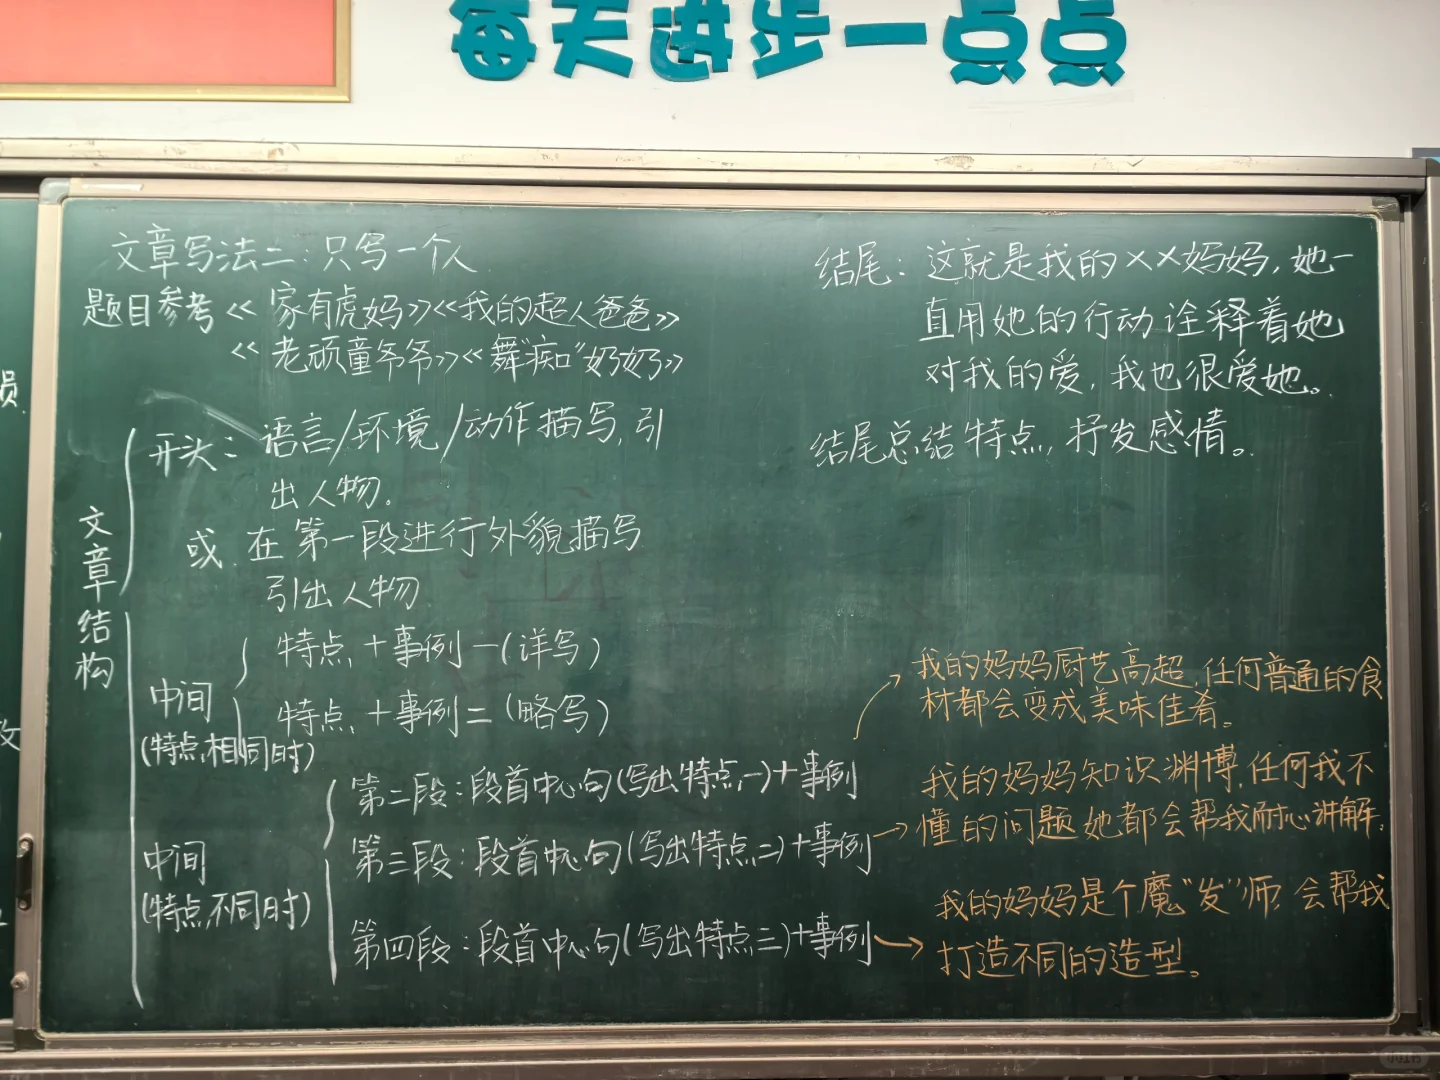 每天进步一点点
文章写法二：只写一个人
题目参考《家有虎妈》《我的超人爸爸》
《老顽童爷爷》《舞"痴"奶奶》
文章结构
开头：语言/环境/动作描写，引
出人物。
或 在第一段进行外貌描写
引出人物
中间
(特点相同时)
特点＋事例一(详写)
特点＋事例二(略写)
中间
(特点不同时)
第二段：段首中心句(写出特点一)＋事例
第三段：段首中心句(写出特点二)＋事例
第四段：段首中心句(写出特点三)＋事例
结尾：这就是我的××妈妈，她一
直用她的行动诠释着她
对我的爱，我也很爱她。
结尾总结特点，抒发感情。
我的妈妈厨艺高超，任何普通的食
材都会变成美味佳肴。
我的妈妈知识渊博，任何我不
懂的问题她都会帮我耐心讲解。
我的妈妈是个魔"发"师，会帮我
打造不同的造型。